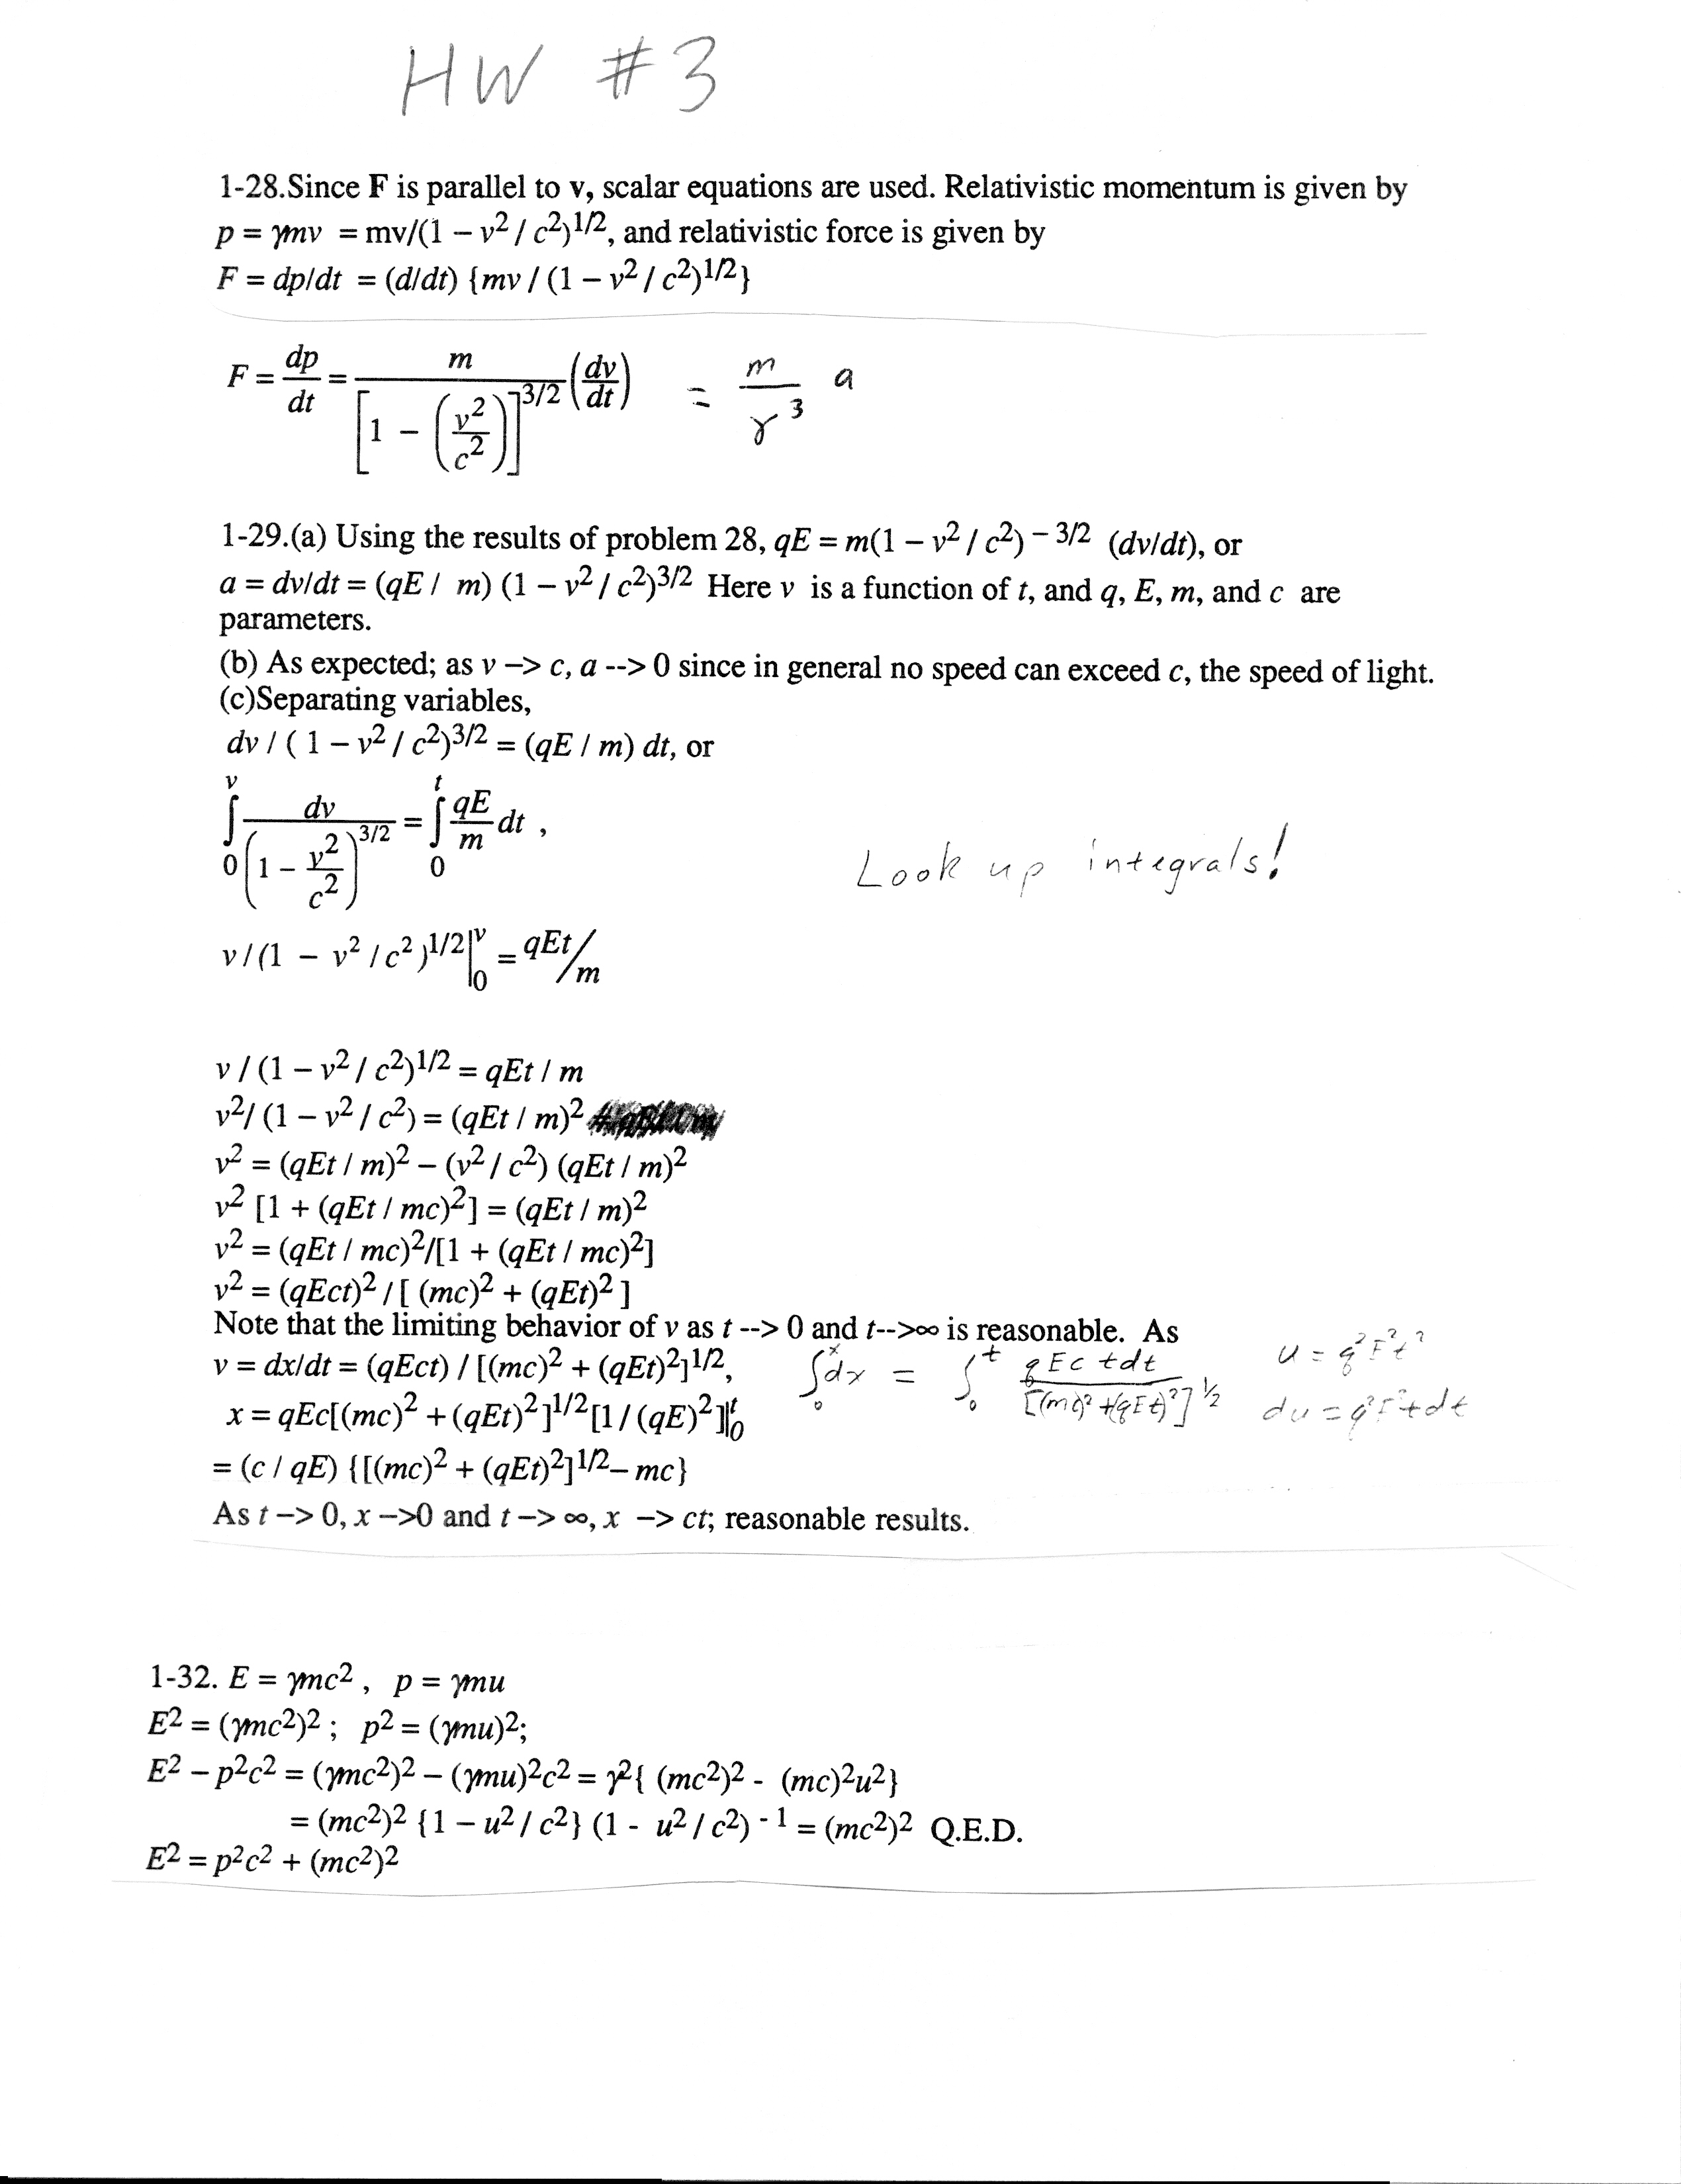 HW #3
1-28.Since F is parallel to v, scalar equations are used. Relativistic momentum is given by
p = γmv = mv/(1 – v² / c²)^1/2, and relativistic force is given by
F = dp/dt = (d/dt) {mv / (1 – v² / c²)^1/2}
F = dp/dt = m / [1 – (v²/c²)]^3/2 (dv/dt) = m/γ³ a
1-29.(a) Using the results of problem 28, qE = m(1 – v² / c²)^– 3/2 (dv/dt), or
a = dv/dt = (qE / m) (1 – v² / c²)^3/2 Here v is a function of t, and q, E, m, and c are
parameters.
(b) As expected; as v –> c, a --> 0 since in general no speed can exceed c, the speed of light.
(c)Separating variables,
dv / ( 1 – v² / c²)^3/2 = (qE / m) dt, or
∫₀^v dv / (1 – v²/c²)^3/2 = ∫₀^t qE/m dt ,
Look up integrals!
v / (1 – v² / c² )^1/2 |₀^v = qEt/m
v / (1 – v² / c²)^1/2 = qEt / m
v²/ (1 – v² / c²) = (qEt / m)²
v² = (qEt / m)² – (v² / c²) (qEt / m)²
v² [1 + (qEt / mc)²] = (qEt / m)²
v² = (qEt / mc)²/[1 + (qEt / mc)²]
v² = (qEct)² / [ (mc)² + (qEt)² ]
Note that the limiting behavior of v as t --> 0 and t-->∞ is reasonable. As
v = dx/dt = (qEct) / [(mc)² + (qEt)²]^1/2, ∫₀^x dx = ∫₀^t qEc tdt / [(mc)² + (qEt)²]^½ u = q²E²t²
du = q²E²tdt
x = qEc[(mc)² + (qEt)² ]^1/2 [1 / (qE)² ]|₀^t
= (c / qE) {[(mc)² + (qEt)²]^1/2 – mc}
As t –> 0, x –>0 and t –> ∞, x –> ct; reasonable results.
1-32. E = γmc² , p = γmu
E² = (γmc²)² ; p² = (γmu)²;
E² – p²c² = (γmc²)² – (γmu)²c² = γ²{ (mc²)² - (mc)²u²}
= (mc²)² {1 – u² / c²} (1 - u² / c²)^-1 = (mc²)² Q.E.D.
E² = p²c² + (mc²)²